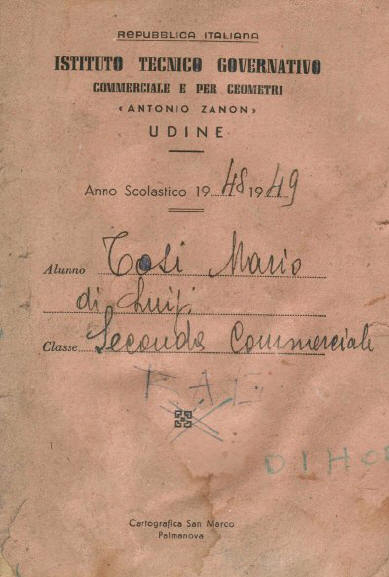 REPUBBLICA ITALIANA
ISTITUTO TECNICO GOVERNATIVO
COMMERCIALE E PER GEOMETRI
« ANTONIO ZANON »
UDINE
Anno Scolastico 19 48 19 49
Alunno Tosi Mario
di Luigi
Classe Seconda Commerciale
Cartografica San Marco
Palmanova